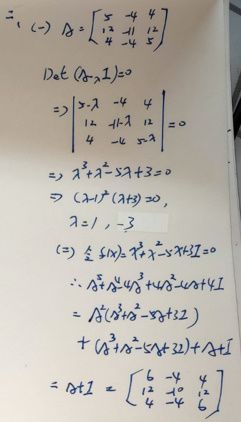 二、(一) A = [5 -4 4; 12 -11 12; 4 -4 5]
Det(A-λI)=0
=> |5-λ -4 4; 12 -11-λ 12; 4 -4 5-λ| =0
=> λ³+λ²-5λ+3=0
=> (λ-1)²(λ+3)=0,
λ=1, -3
(二) 令 f(x)=X³+X²-5X+3I=0
∴ A⁵+A⁴-4A³+4A²-4A+4I
= A²(A³+A²-5A+3I)
+ (A³+A²-5A+3I)+A+I
= A+I = [6 -4 4; 12 -10 12; 4 -4 6]